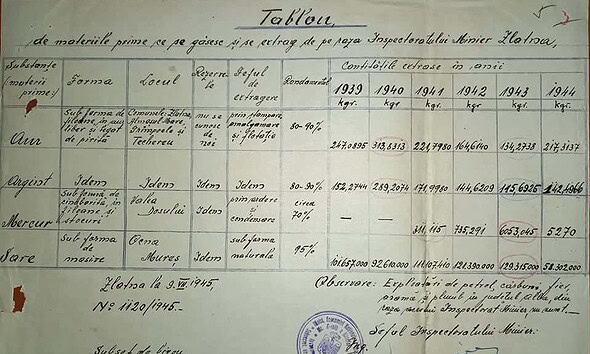 Tablou,
de materiile prime ce se găsesc și se extrag de pe raza Inspectoratului Minier Zlatna,
Substanțe (materii prime) Forma Locul Rezerve Felul de extragere Randamentul Cantitățile extrase în anii
1939 kgr. 1940 kgr. 1941 kgr. 1942 kgr. 1943 kgr. 1944 kgr.
Aur Sub formă de filoane, în aur liber și legat de pirită Comunele: Zlatna, Almașul Mare, și Techereu nu se cunosc prin ștampare, amalgamare și flotație 80-90% 247.0895 318.8313 221.7980 164.6140 134.2738 217.3137
Argint Idem Idem Idem Idem 80-90% 152.2744 289.2074 171.9980 144.6209 115.6925 142.1966
Mercur Sub formă de în filoane și Valea Dosului Idem prin ardere și condensare circa 70% — — 311,115 735,291 6053,045 5270
Sare Sub formă de masive Ocna Mureș Idem sub forma naturală 95% 101.657.000 92.610.000 111.107.410 121.390.000 129.315.000 58.302.000
Zlatna la 9.VII.1945.
No 1120/1945.-
Observare: Exploatări de petrol, cărbuni, fier, aramă și plumb în județul Alba, din raza acestui Inspectorat Minier, nu sunt.—
Șeful Inspectoratului Minier:
Ing.
Subșef de birou